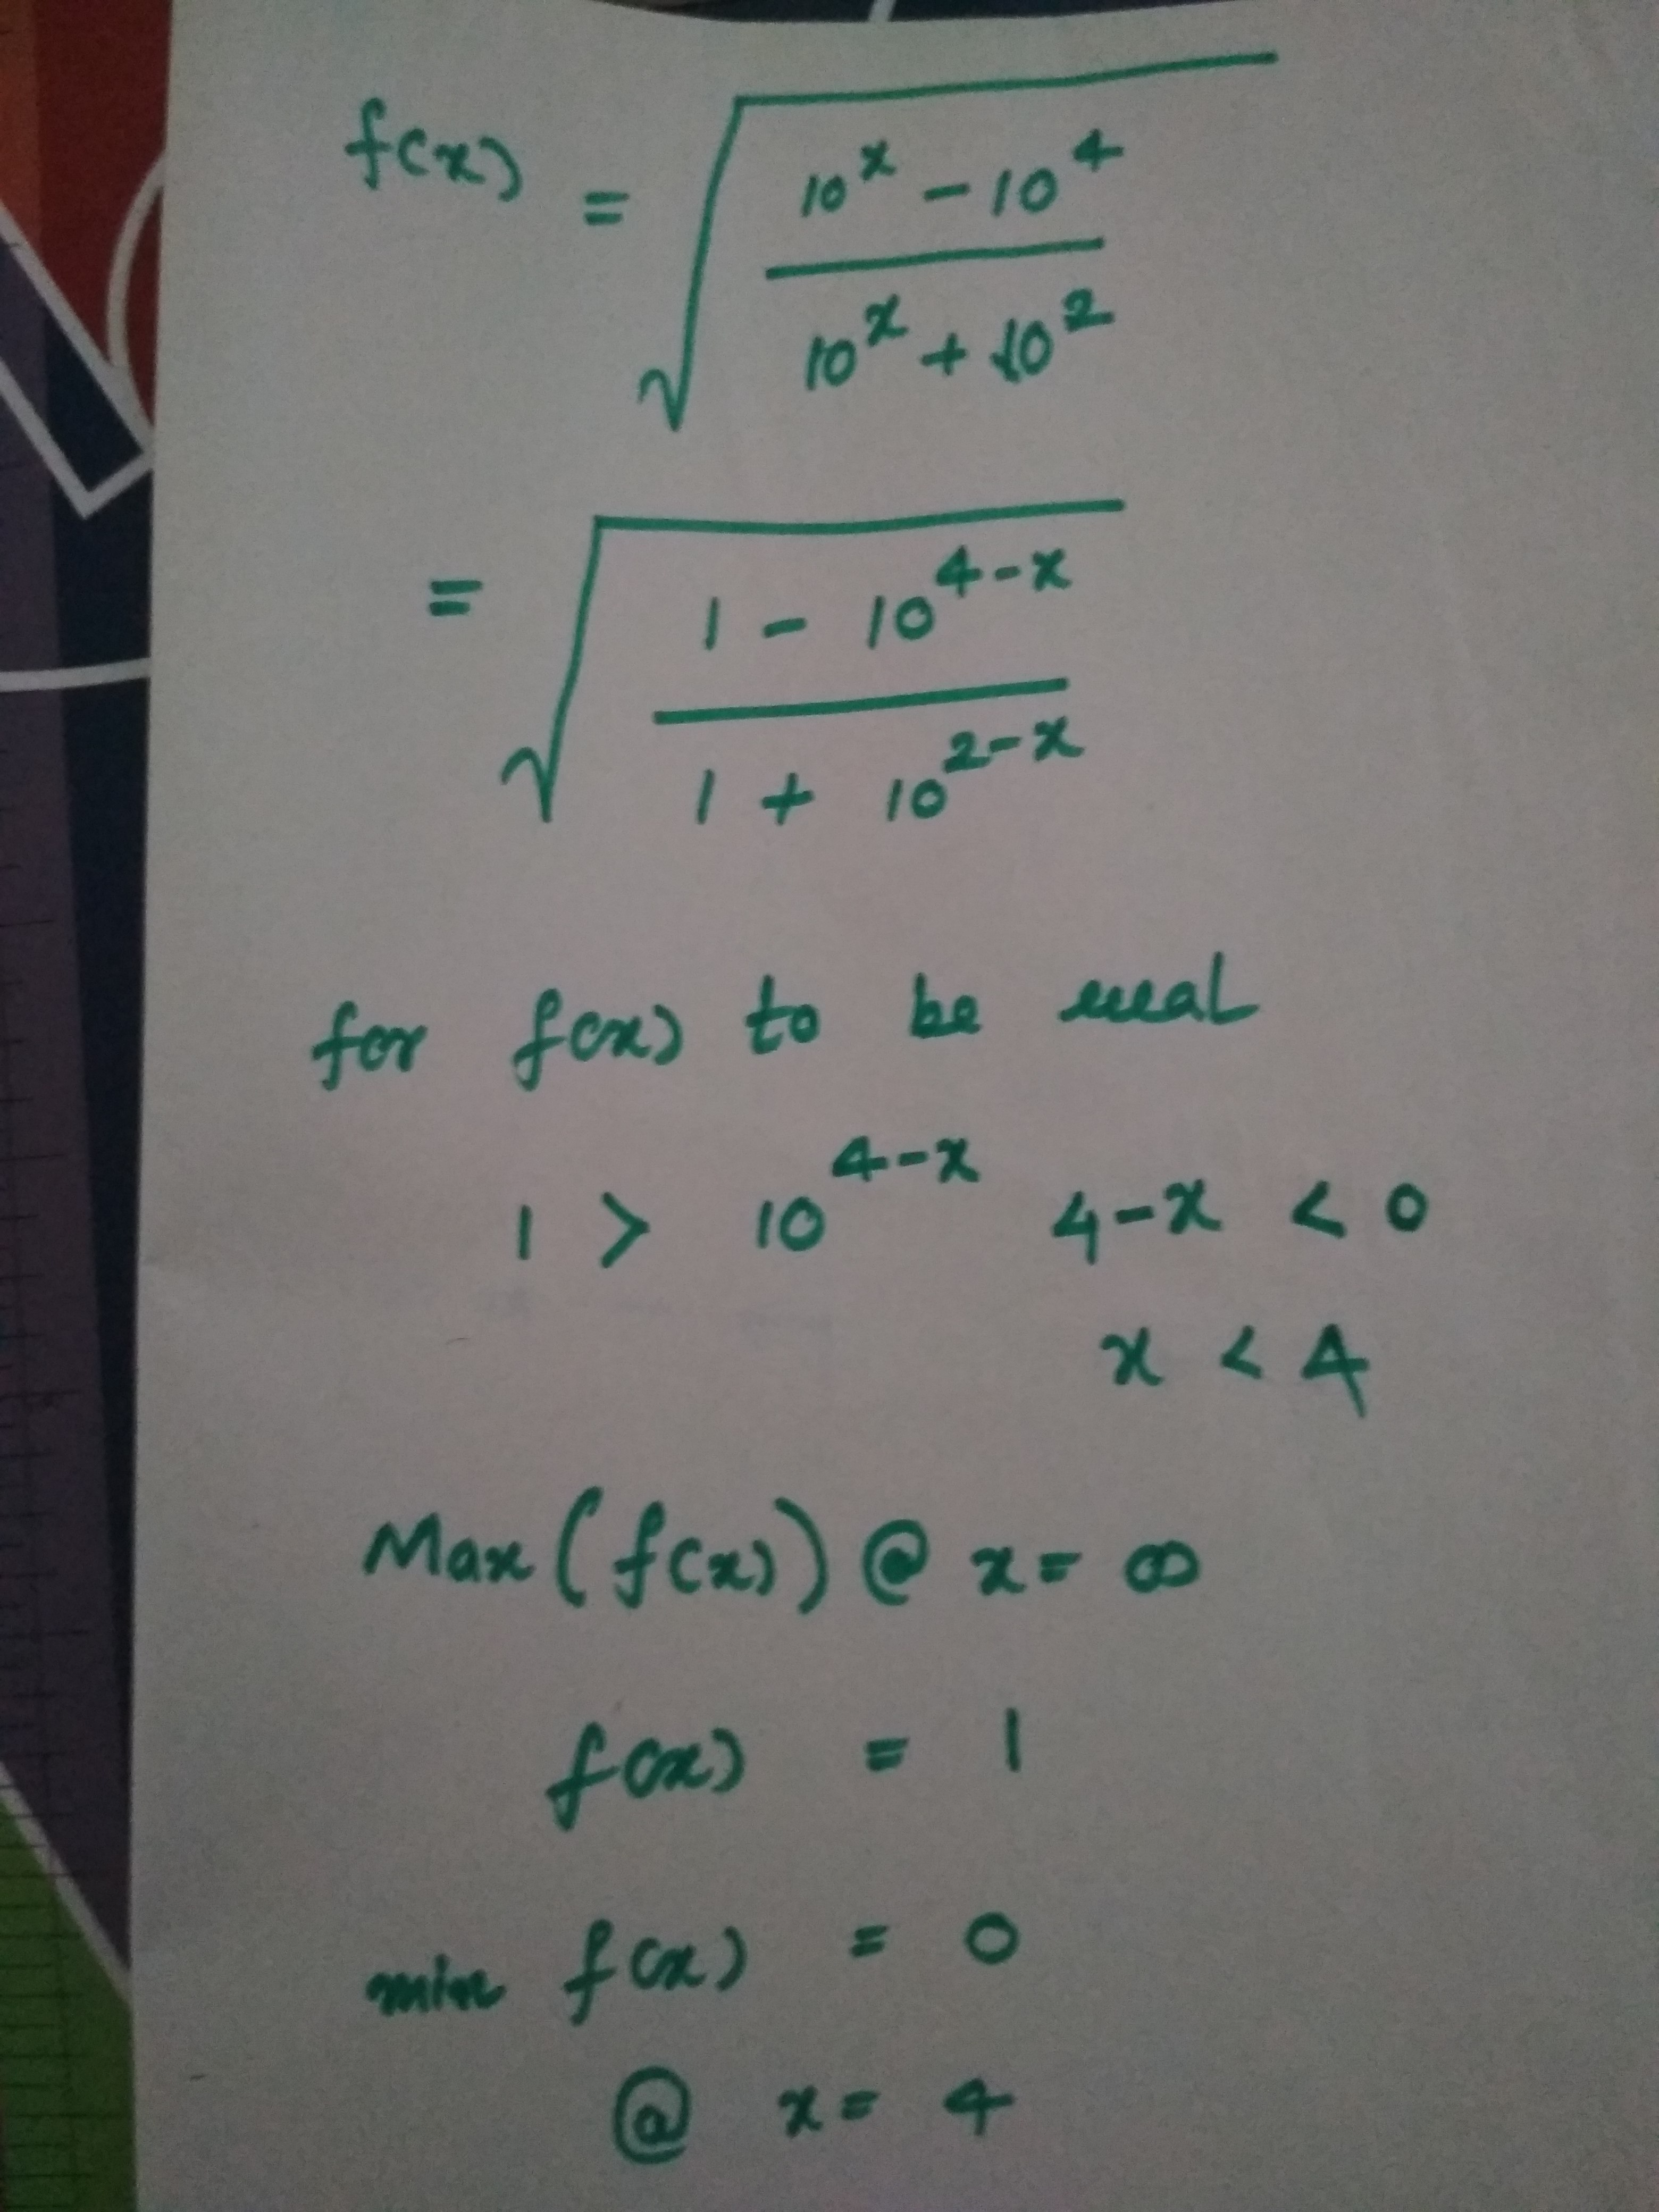 f(x) = √((10^x - 10^4)/(10^x + 10^2))
= √((1 - 10^(4-x))/(1 + 10^(2-x)))
for f(x) to be real
1 > 10^(4-x) 4-x < 0
x < 4
Max(f(x)) @ x = ∞
f(x) = 1
min f(x) = 0
@ x = 4